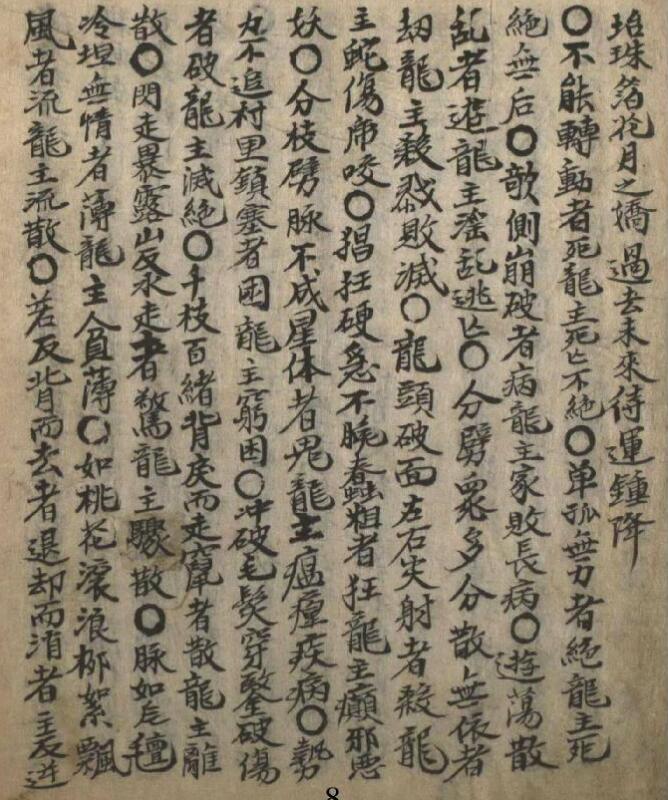 珆珠箔花月之嬌過去未來待運鍾降
〇不能轉動者死龍主死亡不絶〇单孤無力者絶龍主死
絶無后〇欹側崩破者病龍主家敗長病〇遊蕩散
乱者遊龍主滛乱逃亡〇分劈衆多分散無依者
刼龍主殺戮敗滅〇龍頭破面左右尖射者殺龍
主蛇傷席咬〇猖狂硬急不脫蠢粗者狂龍主癲邪悪
妖〇分枝劈脉不成星体者鬼龍主瘟㾮疾病〇勢
力不追村里鎖塞者困龍主窮困〇冲破毛髮穿鑿破傷
者破龍主滅絶〇千枝百緒背戾而走竄者散龍主離
散〇閃走暴露山反水走者驚龍主驟散〇脉如毡氊
冷坦無情者薄龍主人負薄〇如桃花滾浪柳絮飄
風者流龍主流散〇若反背而去者退却而消者主反逆
8